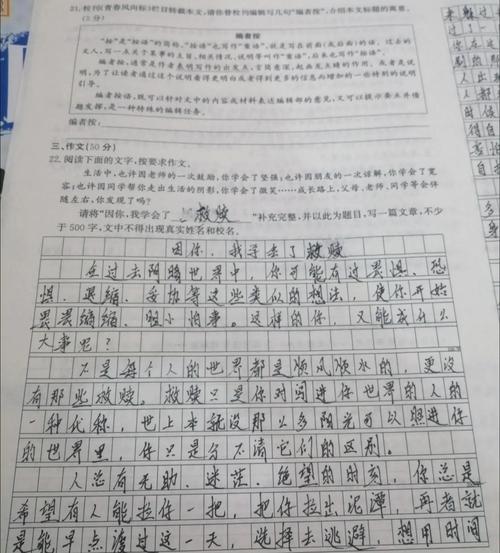 21. 校刊《青春风向标》栏目转载本文，请你替校刊编辑写几句“编者按”，介绍本文标题的寓意。
(5分)
编者按
“按”是“按语”的简称，“按语”也写作“案语”，就是写在前面(或后面)的话。过去的
文人，写一点关于某事的主旨、相关情况、说明等叫作“案语”，后来也写作“按语”。
编者按，通常是作者表明写作的出发点，言简意深，起画龙点睛的作用。或者是说
明，为了让读者通过这个说明看得更明白或者得到更多的信息而增加的一些特别的说明
引导。
编者按语，既可以针对文中的内容或材料表达编辑部的意见，又可以提示要点并借
题发挥，是一种特殊的编辑任务。
编者按：
三、作文(50分)
22. 阅读下面的文字，按要求作文。
生活中，也许因老师的一次鼓励，你学会了坚强；也许因朋友的一次谅解，你学会了宽
容；也许因同学帮你走出生活的阴影，你学会了微笑……成长路上，父母、老师、同学等会伴
随左右，你发现了吗？
请将“因你，我学会了 救赎 ”补充完整，并以此为题目，写一篇文章，不少
于500字，文中不得出现真实姓名和校名。
因你，我学会了救赎
在过去阴暗世界中，你可能有过畏惧、恐
惧、退缩、妥协等这些类似的想法，使你开始
畏畏缩缩、胆小怕事。这样的你，又能成什么
大事呢？
不是每个人的世界都是顺风顺水的，更没
有那些救赎。救赎只是你对闯进你世界的人的
一种代称，世上本就没那么多阳光可以照进你
的世界里，你只是分不清它们的区别。
人总有无助、迷茫、绝望的时刻，你总是
希望有人能拉你一把，把你拉出泥潭，再者就
是能早点渡过这一天，选择去逃避，想用时间